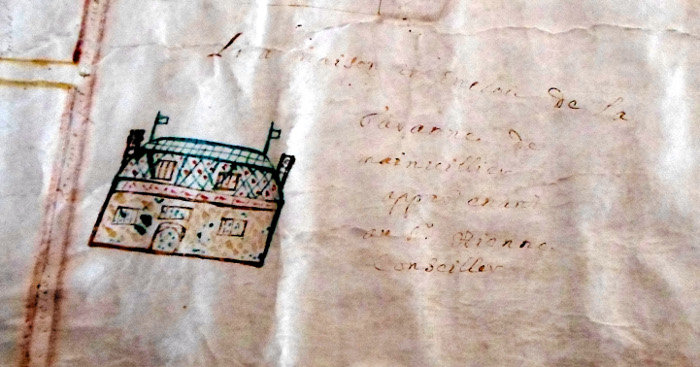 La maison et
de la
Cavanne de
mainvillier
appartenant
au Sr. Rionne
Conseiller